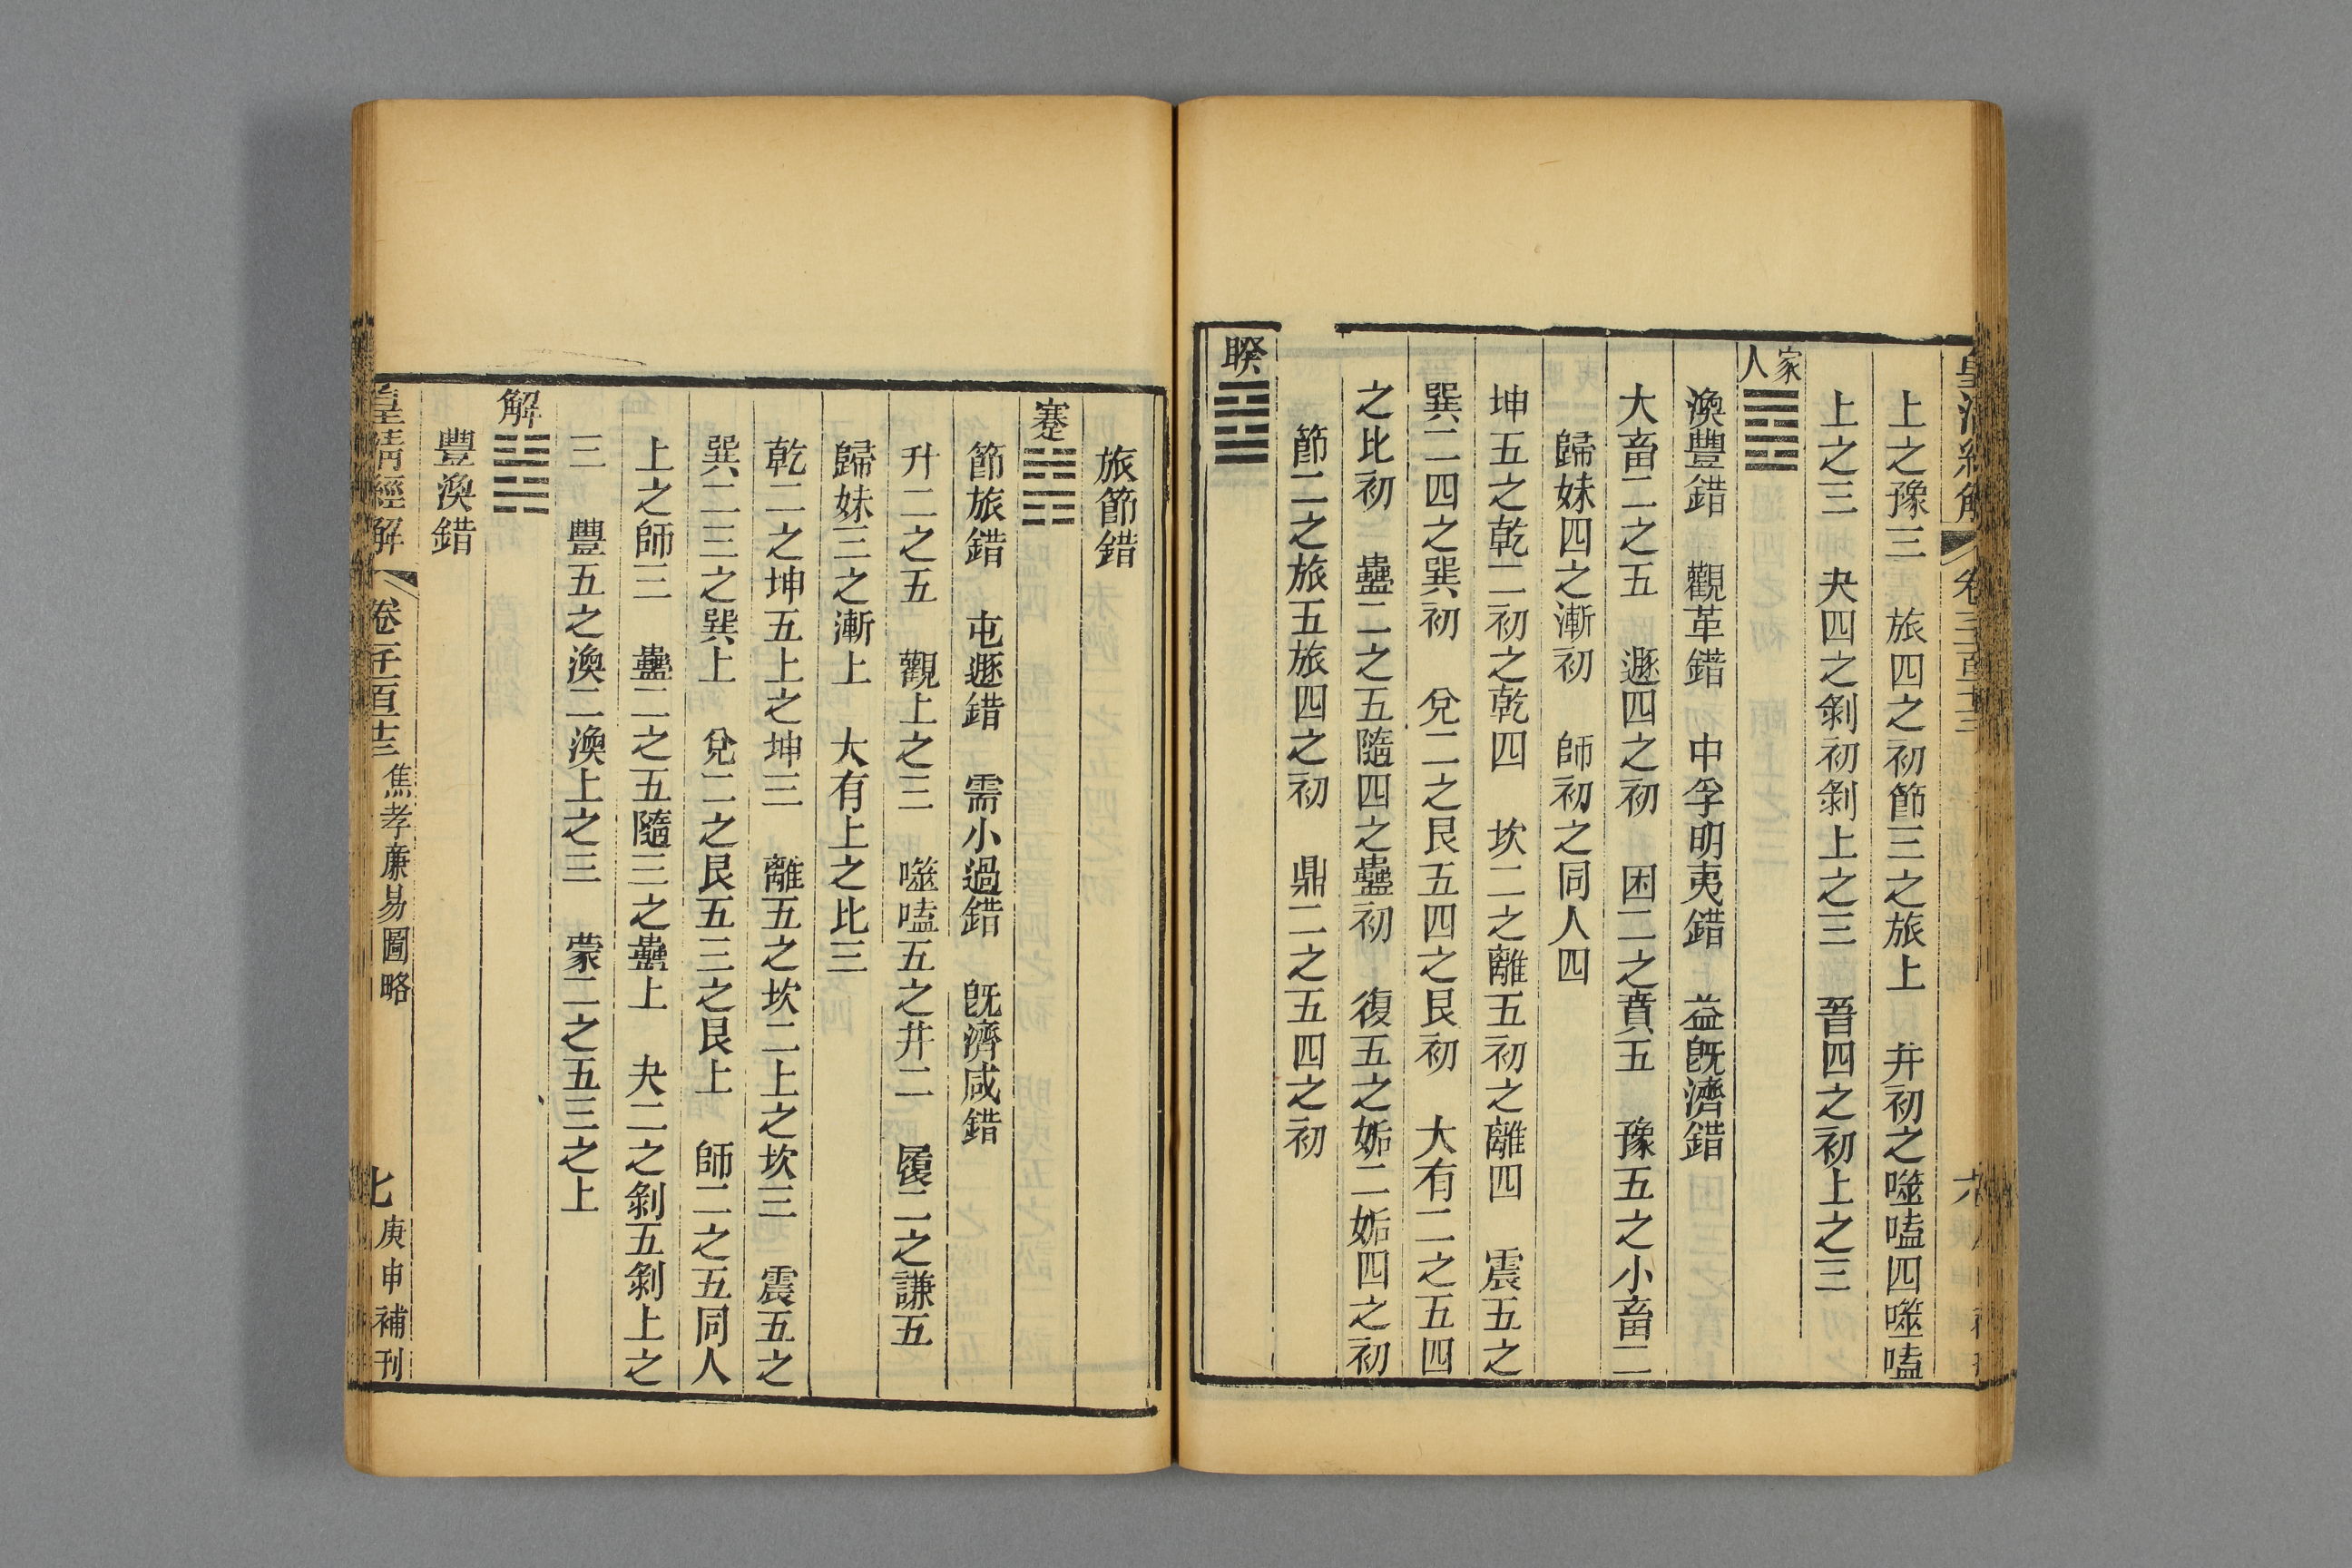 上之豫三　旅四之初節三之旅上　井初之噬嗑四噬嗑
上之三　夬四之剝初剝上之三　晉四之初上之三
家人䷤
渙豐錯　觀革錯　中孚明夷錯　益旣濟錯
大畜二之五　遯四之初　困二之賁五　豫五之小畜二
歸妹四之漸初　師初之同人四
坤五之乾二初之乾四　坎二之離五初之離四　震五之
巽二四之巽初　兌二之艮五四之艮初　大有二之五四
之比初　蠱二之五隨四之蠱初　復五之姤二姤四之初
節二之旅五旅四之初　鼎二之五四之初
睽䷥
旅節錯
蹇䷦
節旅錯　屯遯錯　需小過錯　旣濟咸錯
升二之五　觀上之三　噬嗑五之井二　履二之謙五
歸妹三之漸上　大有上之比三
乾二之坤五上之坤三　離五之坎二上之坎三　震五之
巽二三之巽上　兌二之艮五三之艮上　師二之五同人
上之師三　蠱二之五隨三之蠱上　夬二之剝五剝上之
三　豐五之渙二渙上之三　蒙二之五三之上
解䷧
豐渙錯
皇清經解　卷一千一百十三　焦孝廉易圖略　七　庚申補刊